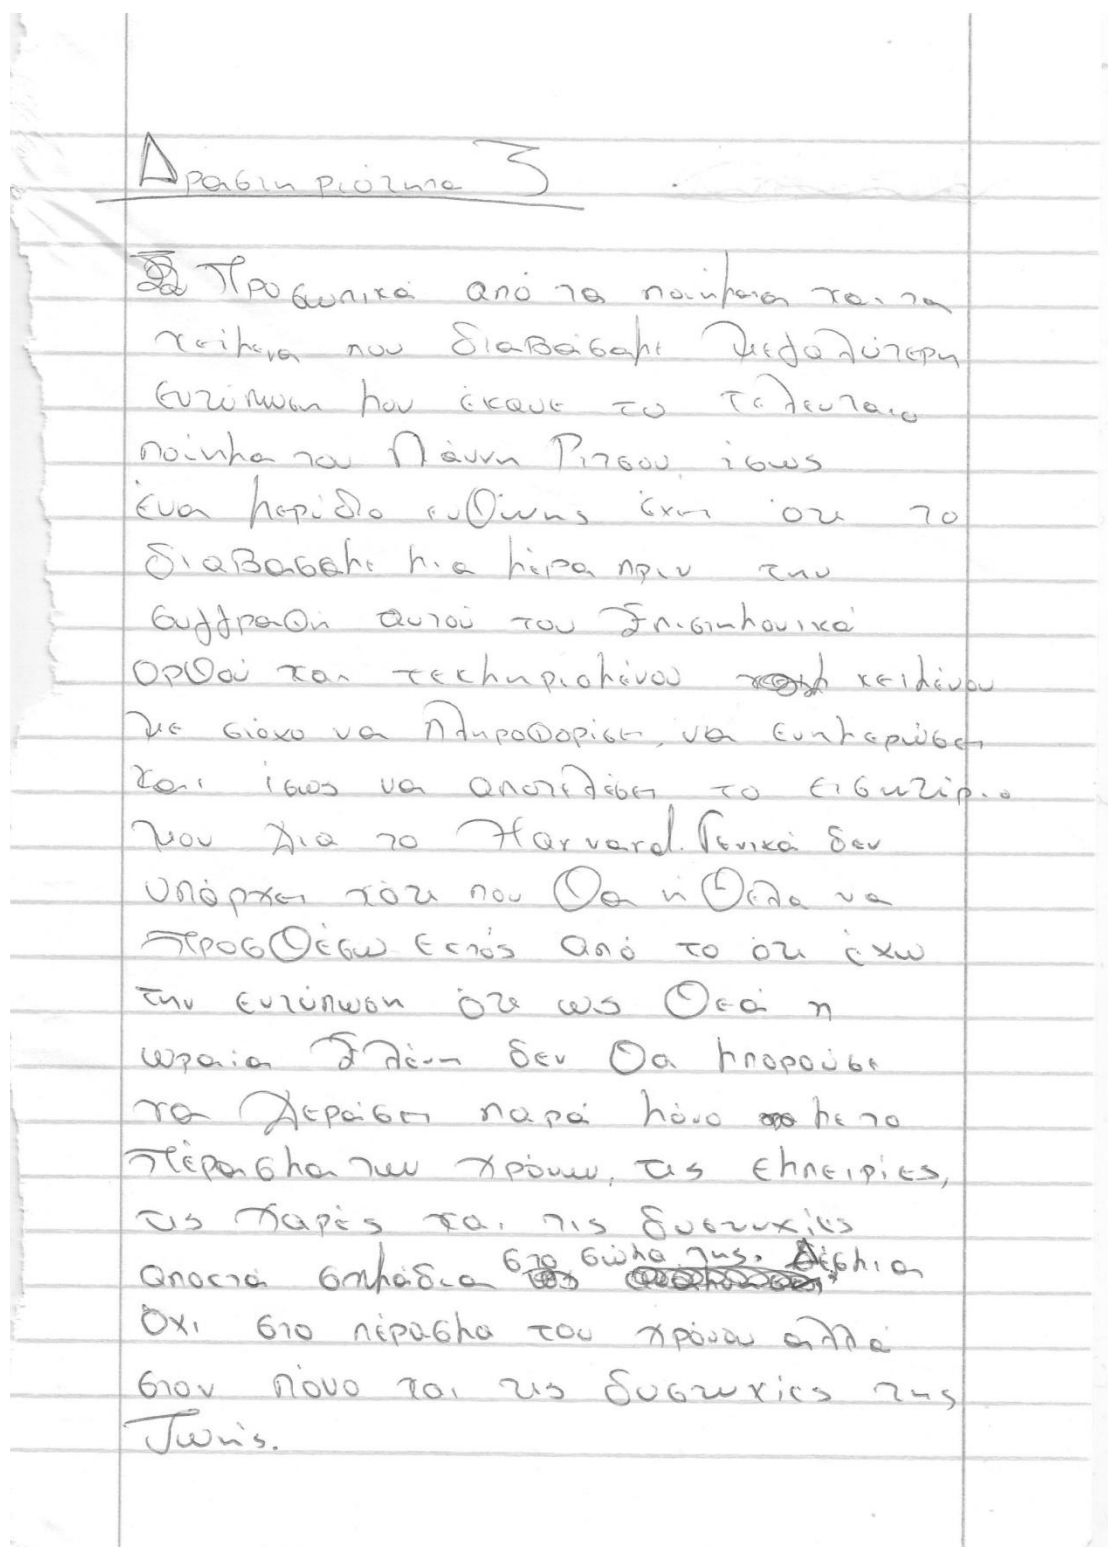 Δραστηριότητα 3
Προσωπικά από τα ποιήματα και τα
κείμενα που διαβάσαμε μεγαλύτερη
εντύπωση μου έκανε το τελευταίο
ποίημα του Γιάννη Ρίτσου, ίσως
ένα μερίδιο ευθύνης έχει ότι το
διαβασαμε μια μέρα πριν την
συγγραφή αυτού του Επιστημονικά
ορθού και τεκμηριομένου κειμένου
με στόχο να πληροφορίσει, να ενημερώσει
και ίσως να αποτελέσει το εισητίριο
μου για το Harvard. Γενικά δεν
υπάρχει κάτι που θα ήθελα να
προσθέσω εκτός από το ότι έχω
την εντύπωση ότι ως Θεά η
ωραία Ελένη δεν θα μπορούσε
να γεράσει παρά μόνο με το
πέρασμα των χρόνων, τις εμπειρίες,
τις χαρές και τις δυστυχίες
αποκτά σημάδια στο σώμα της. Δέσμια
όχι στο πέρασμα του χρόνου αλλά
στον πόνο και τις δυστυχίες της
ζωής.